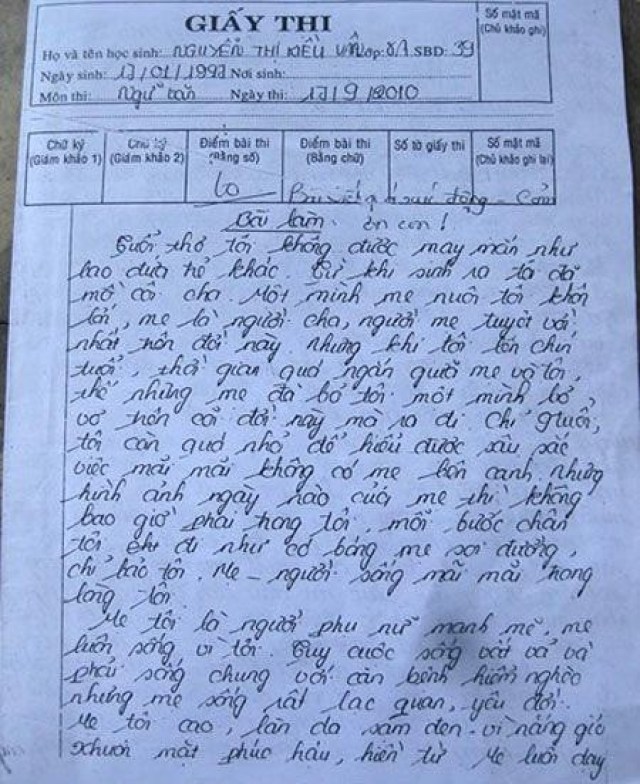 GIẤY THI
Số mật mã
(Chủ khảo ghi)
Họ và tên học sinh: NGUYỄN THỊ KIỀU VÂN Lớp: 8A SBD: 39
Ngày sinh: 17/01/1997 Nơi sinh:
Môn thi: Ngữ văn Ngày thi: 17/9/2010
Chữ ký
(Giám khảo 1)
Chữ ký
(Giám khảo 2)
Điểm bài thi
(Bằng số)
Điểm bài thi
(Bằng chữ)
Số tờ giấy thi
Số mật mã
(Chủ khảo ghi lại)
10 Bài viết xúc động - Cảm
ơn con!
Bài làm
Tuổi thơ tôi không được may mắn như
bao đứa trẻ khác. Từ khi sinh ra tôi đã
mồ côi cha. Một mình mẹ nuôi tôi khôn
lớn, mẹ là người cha, người mẹ tuyệt vời
nhất trên đời này. Nhưng khi tôi lên chín
tuổi, thời gian quá ngắn gười mẹ và tôi,
thế nhưng mẹ đã bỏ tôi một mình bơ
vơ trên cõi đời này mà ra đi. Chỉ 9 tuổi,
tôi còn quá nhỏ để hiểu được sâu sắc
việc mãi mãi không có mẹ bên cạnh nhưng
hình ảnh ngày nào của mẹ thì không
bao giờ phai trong tôi, mỗi bước chân
tôi đi như có bóng mẹ soi đường,
chỉ bảo tôi. Mẹ - người sống mãi mãi trong
lòng tôi.
Mẹ tôi là người phụ nữ mạnh mẽ, mẹ
luôn sống vì tôi. Tuy cuộc sống vất vả và
phải sống chung với căn bệnh hiểm nghèo
nhưng mẹ sống rất lạc quan, yêu đời.
Mẹ tôi cao, làn da sạm đen vì nắng gió
khuôn mặt phúc hậu, hiền từ. Mẹ luôn dạy